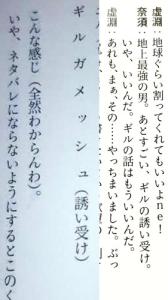 虚淵：地球ぐらい割ってくれてもいいよne！
奈須：地上最強の男。あとすごい、ギルの誘い受け。
いや、いいんだ。ギルの話はもういいんだ。
虚淵：あれも、まぁ、その……やっちまいました。ぶっ
ギルガメッシュ（誘い受け）
こんな感じ（全然わからんわ）。
いや、ネタバレにならないようにするとこのく